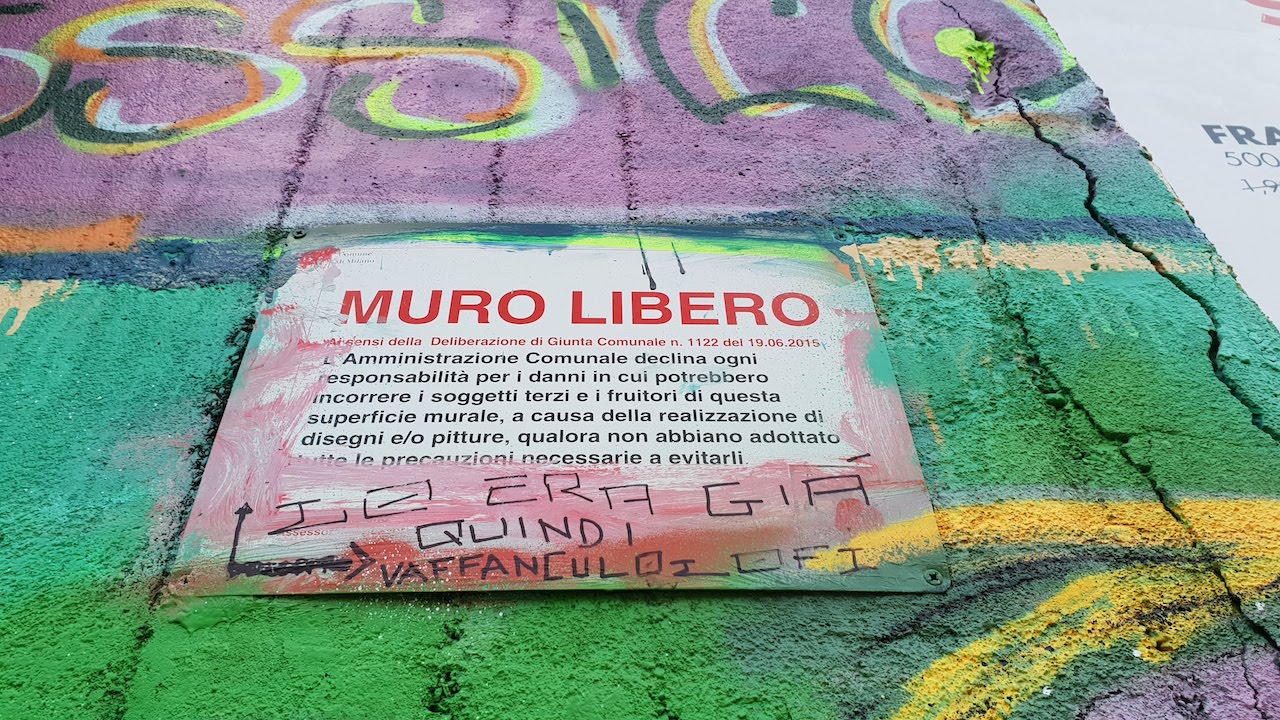 SSICO
FRA
500
1,9
Comune
di Milano
MURO LIBERO
Ai sensi della Deliberazione di Giunta Comunale n. 1122 del 19.06.2015
L'Amministrazione Comunale declina ogni
responsabilità per i danni in cui potrebbero
incorrere i soggetti terzi e i fruitori di questa
superficie murale, a causa della realizzazione di
disegni e/o pitture, qualora non abbiano adottato
tutte le precauzioni necessarie a evitarli.
ERA GIÀ
QUINDI
VAFFANCULO